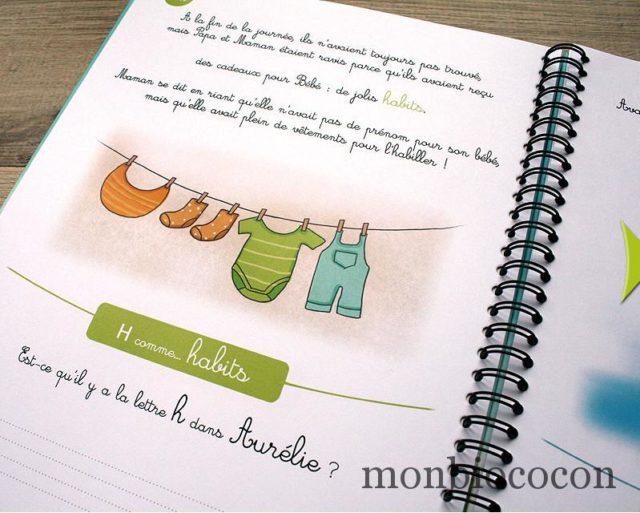 A la fin de la journée, ils n'avaient toujours pas trouvé
mais Papa et Maman étaient ravis parce qu'ils avaient reçu
des cadeaux pour Bébé : de jolis habits.
Maman se dit en riant qu'elle n'avait pas de prénom pour son bébé,
mais qu'elle avait plein de vêtements pour l'habiller !
H comme... habits
Est-ce qu'il y a la lettre h dans Aurélie ?
monbiococon